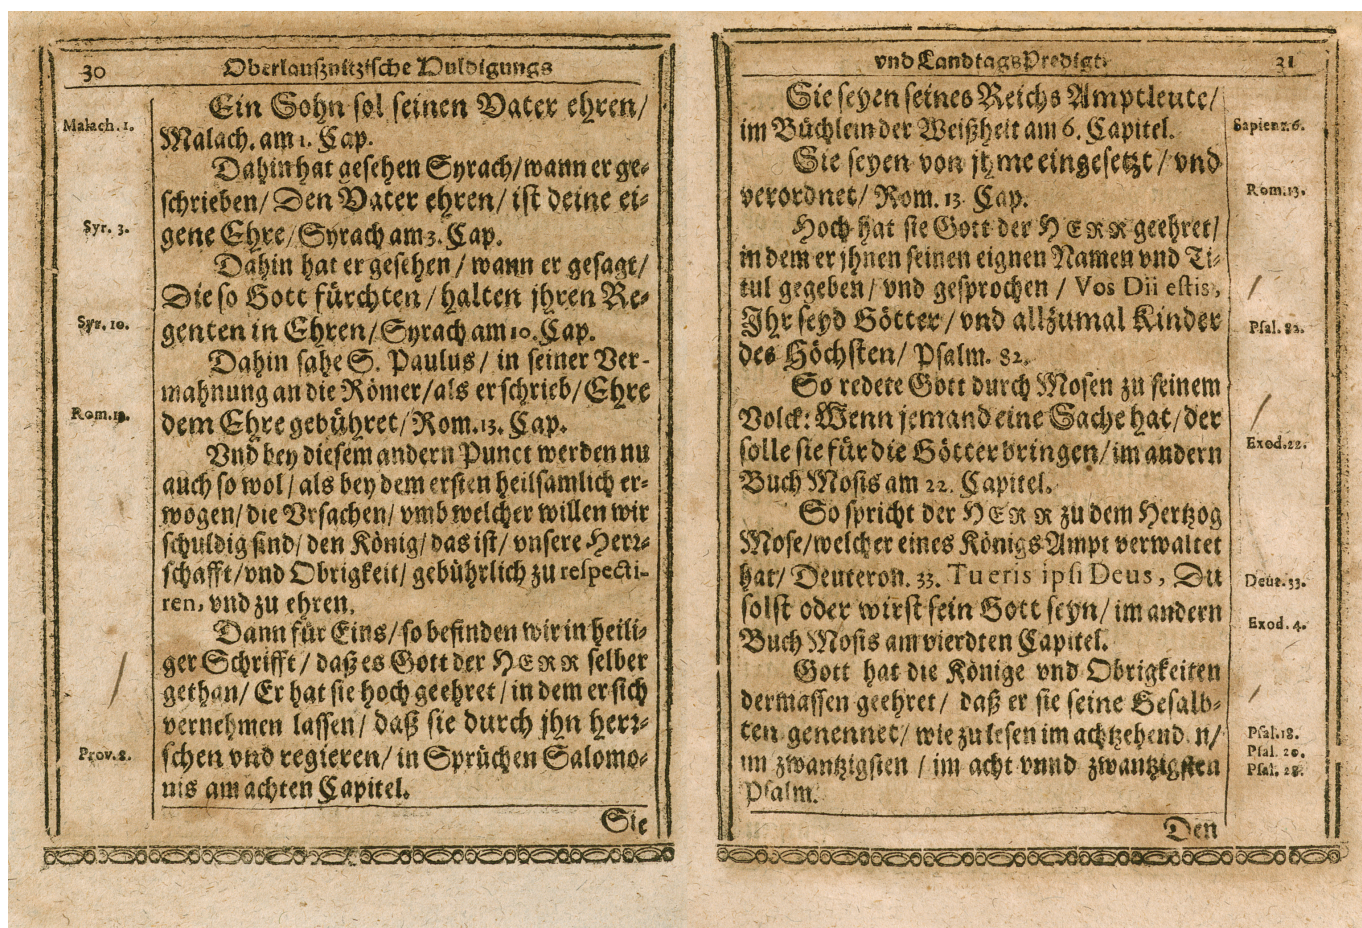 30 Oberlaußnitzische Huldigungs
Ein Sohn sol seinen Vater ehren/
Malach. 1.
Malach. am 1. Cap.
Dahin hat gesehen Syrach/wann er ge-
schrieben/ Den Vater ehren/ ist deine ei-
Syr. 3.
gene Ehre/Syrach am 3. Cap.
Dahin hat er gesehen / wann er gesagt/
Die so Gott fürchten / halten jhren Re-
Syr. 10.
genten in Ehren/Syrach am 10. Cap.
Dahin sahe S. Paulus / in seiner Ver-
mahnung an die Römer/als er schrieb/Ehre
Rom. 13.
dem Ehre gebühret/Rom. 13. Cap.
Vnd bey diesem andern Punct werden nu
auch so wol / als bey dem ersten heilsamlich er-
wogen/ die Vrsachen/ vmb welcher willen wir
schuldig sind/ den König/ das ist/ vnsere Herr-
schafft/vnd Obrigkeit/ gebührlich zu respecti-
ren, vnd zu ehren.
Dann für Eins/so befinden wir in heili-
ger Schrifft / daß es Gott der HERR selber
gethan/ Er hat sie hoch geehret / in dem er sich
vernehmen lassen/ daß sie durch jhn herr-
Prov. 8.
schen vnd regieren/ in Sprüchen Salomo-
nis am achten Capitel.
Sie
vnd LandtagsPredigt. 31
Sie seyen seines Reichs Amptleute/
Sapient. 6.
im Büchlein der Weißheit am 6. Capitel.
Sie seyen von jhme eingesetzt / vnd
Rom. 13.
verordnet/ Rom. 13. Cap.
Hoch hat sie Gott der HERR geehret/
in dem er jhnen seinen eignen Namen vnd Ti-
tul gegeben/ vnd gesprochen / Vos Dii estis,
Psal. 82.
Jhr seyd Götter/ vnd allzumal Kinder
des Höchsten/ Psalm. 82.
So redete Gott durch Mosen zu seinem
Volck: Wenn jemand eine Sache hat/der
Exod. 22.
solle sie für die Götter bringen/im andern
Buch Mosis am 22. Capitel.
So spricht der HERR zu dem Hertzog
Mose/welcher eines Königs Ampt verwaltet
Deut. 33.
hat/ Deuteron. 33. Tu eris ipsi Deus, Du
Exod. 4.
solst oder wirst sein Gott seyn/ im andern
Buch Mosis am vierdten Capitel.
Gott hat die Könige vnd Obrigkeiten
dermassen geehret / daß er sie seine Gesalb-
Psal. 18.
ten genennet/ wie zu lesen im achtzehenden/
Psal. 20.
Psal. 28.
im zwantzigsten / im acht vnnd zwantzigsten
Psalm.
Den